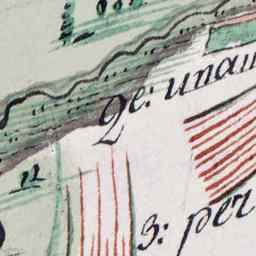 2e: unam
12
3: per